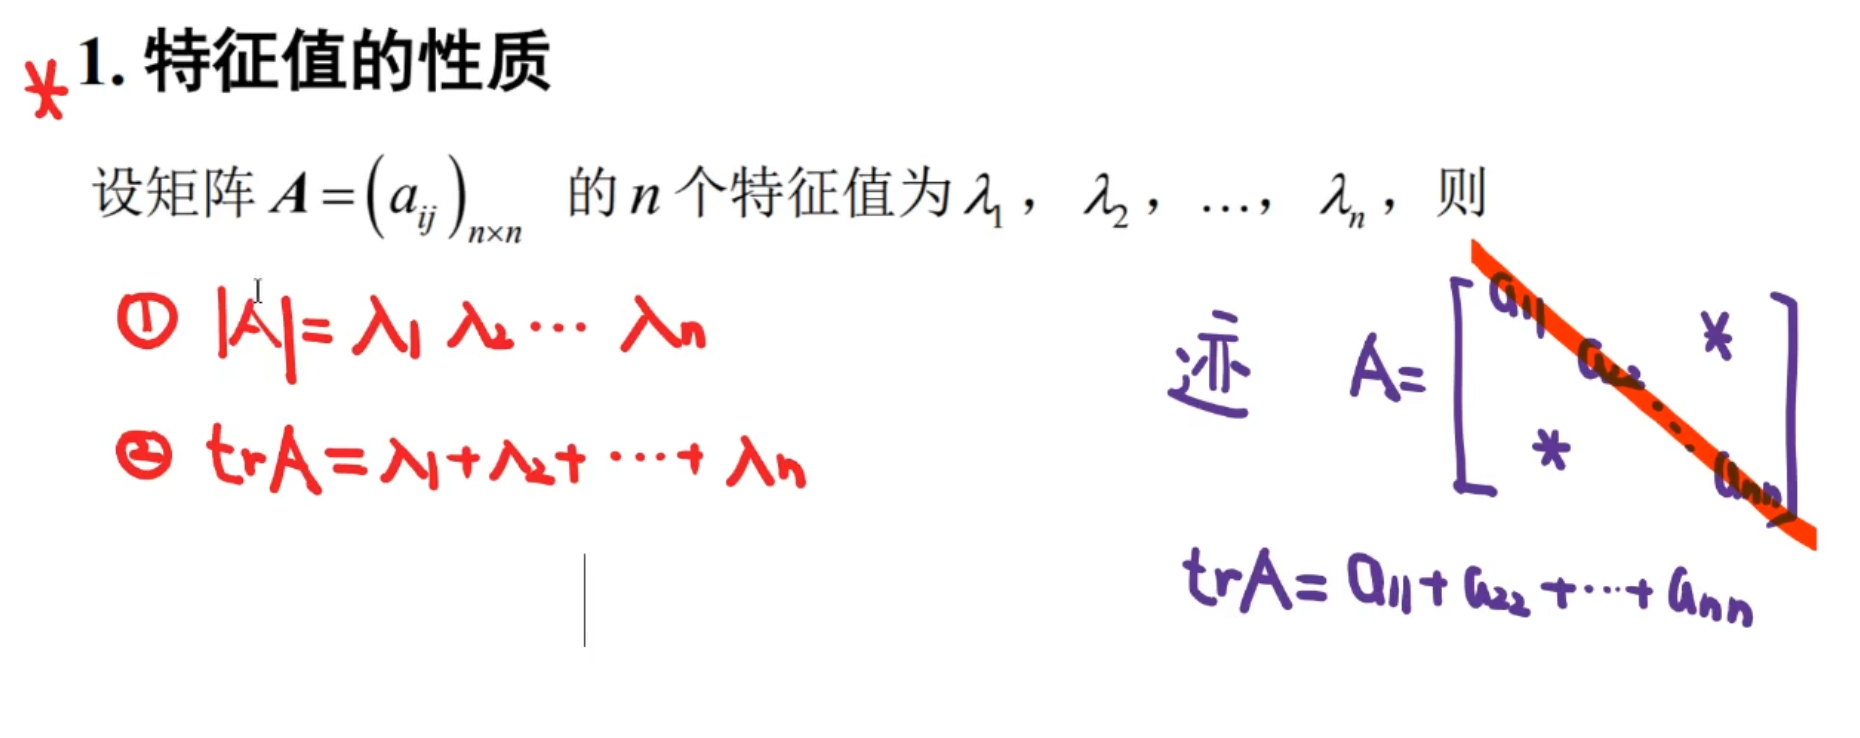 * 1. 特征值的性质
设矩阵 A = (a_ij)_n×n 的 n 个特征值为 λ₁， λ₂， …， λₙ， 则
① |A| = λ₁ λ₂ ⋯ λₙ
② trA = λ₁ + λ₂ + ⋯ + λₙ
迹 A = [ a₁₁ a₂₂ ⋱ aₙₙ * * ]
trA = a₁₁ + a₂₂ + ⋯ + aₙₙ